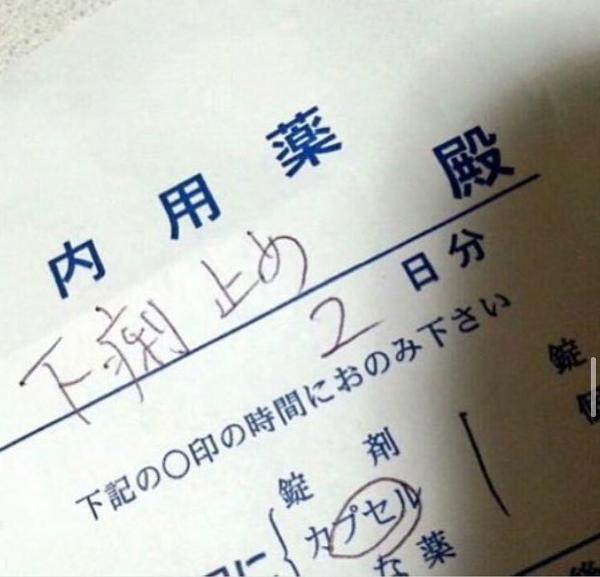 内用薬
下痢止め 殿
2日分
下記の〇印の時間におのみ下さい
錠剤 錠
カプセル
な薬